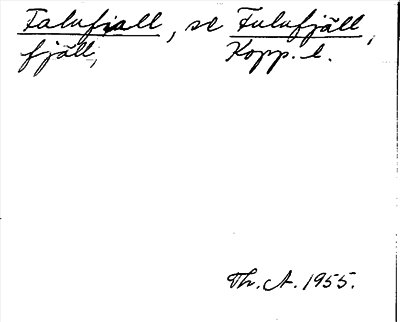 Falufjall, se Fulufjäll,
fjäll, Kopp. l.
Th. A. 1955.